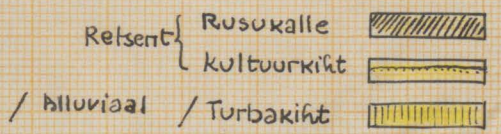 Retsent { Rusukalle
kultuurkiht
/ Alluviaal / Turbakiht